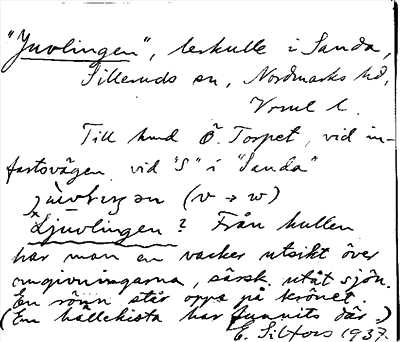 "Juvlingen", lerkulle i Sanda,
Silleruds sn, Nordmarks hd,
Vrml l.
Till hmd Ö. Torpet, vid in-
fartsvägen vid "S" i "Sanda"
(v → w)
Ljuvlingen? Från kullen
har man en vacker utsikt över
omgivningarna, särsk. utåt sjön.
En rönn står oppe på krönet.
(En hällekista har funnits där.)
1937.